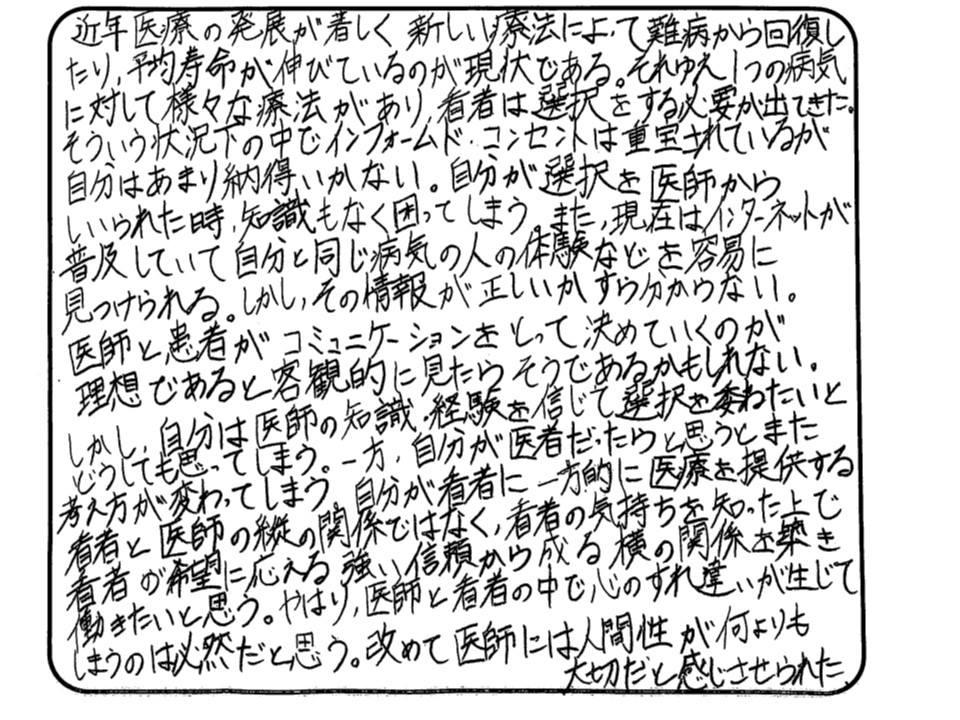 近年医療の発展が著しく新しい療法によって難病から回復し
たり、平均寿命が伸びているのが現状である。それゆえ1つの病気
に対して様々な療法があり、看者は選択をする必要が出てきた。
そういう状況下の中でインフォームド・コンセントは重宝されているが
自分はあまり納得いかない。自分が選択を医師から
しいられた時、知識もなく困ってしまう。また、現在はインターネットが
普及していて自分と同じ病気の人の体験などを容易に
見つけられる。しかし、その情報が正しいかすら分からない。
医師と患者がコミュニケーションをとって決めていくのが
理想であると客観的に見たらそうであるかもしれない。
しかし、自分は医師の知識、経験を信じて選択を委ねたいと
どうしても思ってしまう。一方、自分が医者だったらと思うとまた
考え方が変わってしまう。自分が看者に一方的に医療を提供する
看者と医師の縦の関係ではなく、看者の気持ちを知った上で
看者の希望に応える強い信頼から成る横の関係を築き
働きたいと思う。やはり、医師と看者の中で心のすれ違いが生じて
しまうのは必然だと思う。改めて医師には人間性が何よりも
大切だと感じさせられた。